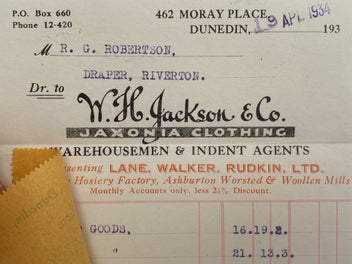 P.O. Box 660
Phone 12-420
462 MORAY PLACE,
DUNEDIN,
19 APR 1934
193
M R. G. ROBERTSON,
DRAPER, RIVERTON.
Dr. to
W. H. Jackson & Co.
JAXONIA CLOTHING
WAREHOUSEMEN & INDENT AGENTS
senting LANE, WALKER, RUDKIN, LTD.
Hosiery Factory, Ashburton Worsted & Woollen Mills
Monthly Accounts only, less 2½% Discount.
GOODS, 16.19.8.
" 21. 13.3.